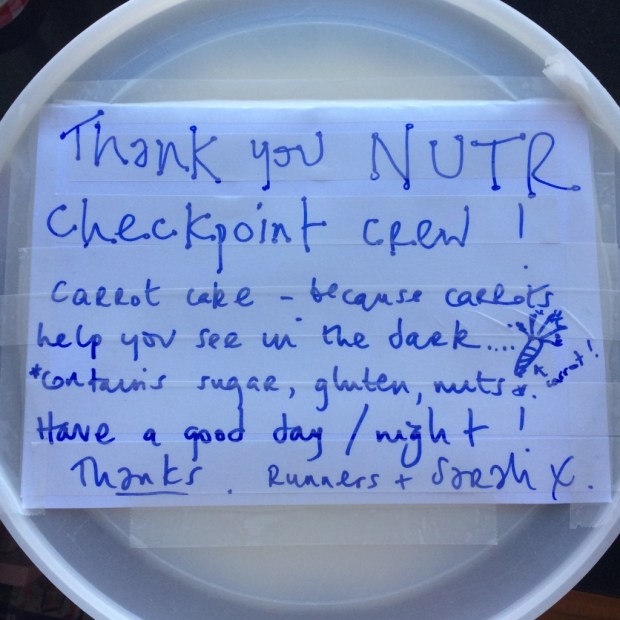 Thank you NUTR
Checkpoint crew !
Carrot cake - because carrots
help you see in the dark....
carrot!
*contains sugar, gluten, nuts *.
Have a good day / night !
Thanks. Runners + Sarah X.